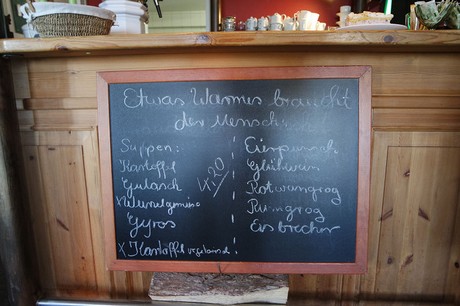 Etwas Warmes braucht
der Mensch
Suppen:
Kartoffel
Gulasch
Gyros
X Kartoffel vegetarisch
Eierpunsch
Glühwein
Rotweingrog
Rumgrog
Eisbrecher